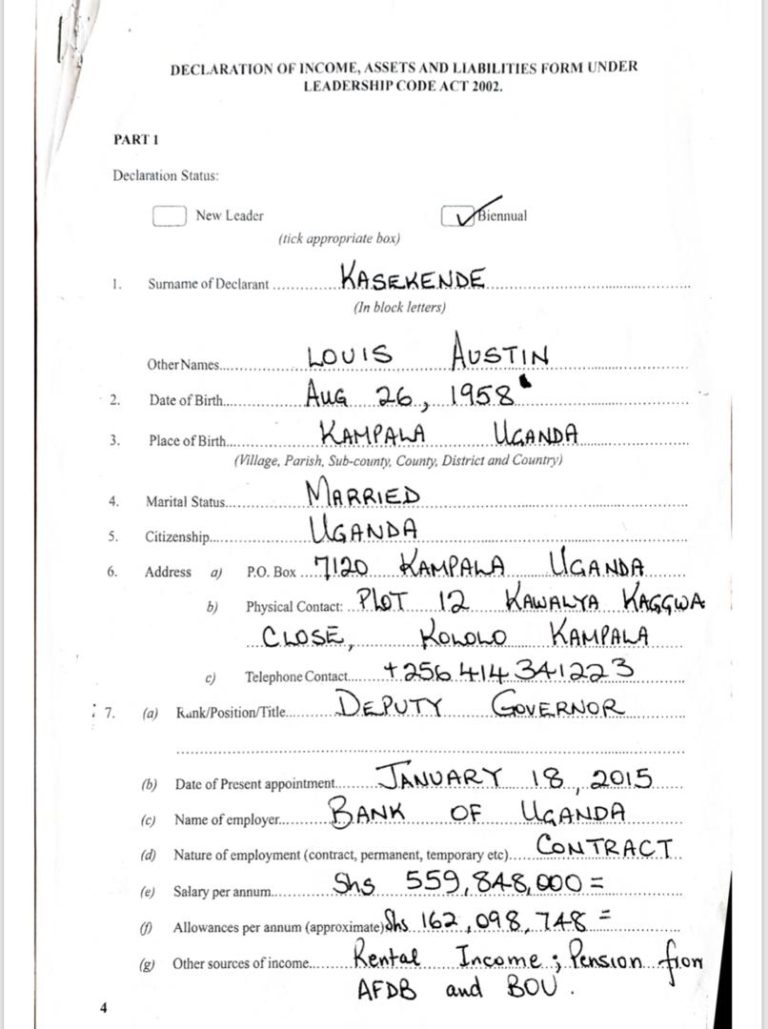 DECLARATION OF INCOME, ASSETS AND LIABILITIES FORM UNDER
LEADERSHIP CODE ACT 2002.
PART 1
Declaration Status:
New Leader Biennual
(tick appropriate box)
1. Surname of Declarant KASEKENDE
(In block letters)
Other Names LOUIS AUSTIN
2. Date of Birth AUG 26, 1958
3. Place of Birth KAMPALA UGANDA
(Village, Parish, Sub-county, County, District and Country)
4. Marital Status MARRIED
5. Citizenship UGANDA
6. Address a) P.O. Box 7120 KAMPALA UGANDA
b) Physical Contact: PLOT 12 KAWALYA KAGGWA
CLOSE, KOLOLO KAMPALA
c) Telephone Contact +256 414 341223
7. (a) Rank/Position/Title DEPUTY GOVERNOR
(b) Date of Present appointment JANUARY 18, 2015
(c) Name of employer BANK OF UGANDA
(d) Nature of employment (contract, permanent, temporary etc) CONTRACT
(e) Salary per annum Shs 559,848,000=
(f) Allowances per annum (approximate) Shs 162,098,748=
(g) Other sources of income Rental Income; Pension from
AFDB and BOU.
4